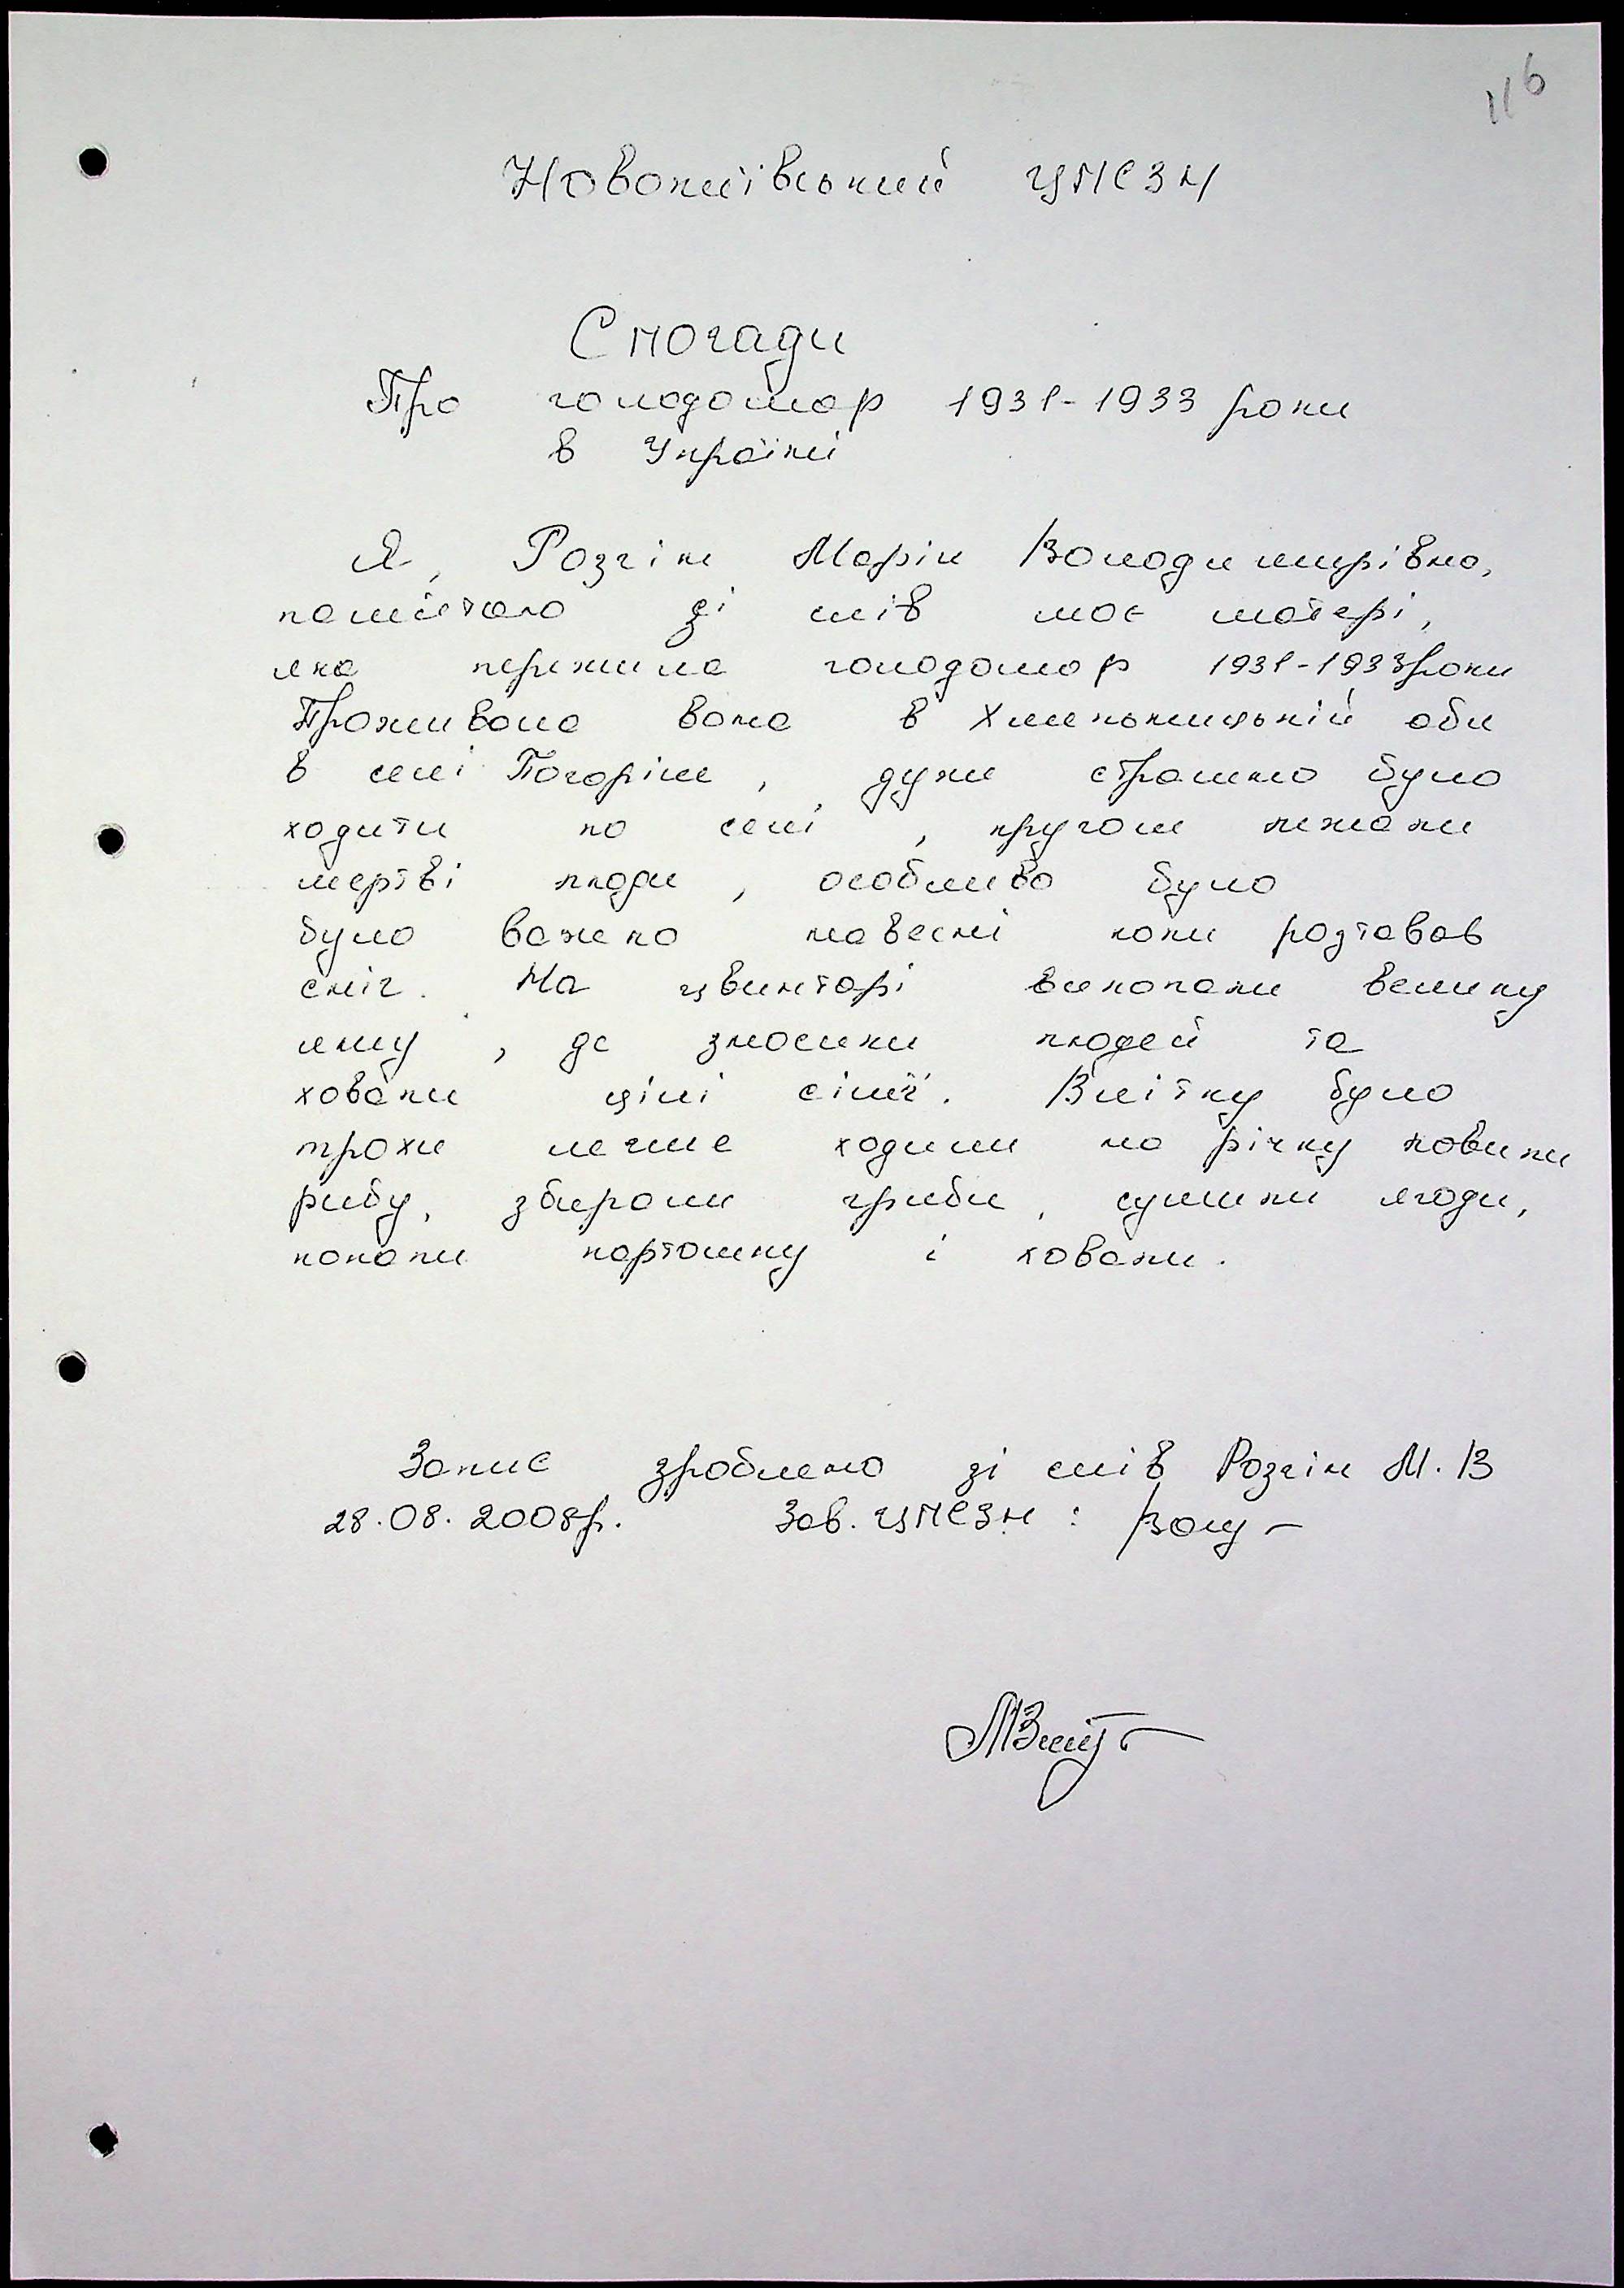 116
Новокиївський ЦПСЗН
Спогади
Про голодомор 1931-1933 роки
в Україні
Я, Розгін Марія Володимирівна,
памйятаю зі слів моє матері,
яка пережила голодомор 1931-1933 роки
Проживала вона в Хмельницькій обл
в селі Погоріле, дуже страшно було
ходити по селі, кругом лежали
мертві люди, особливо було
було важко навесні коли розтавав
сніг. На цвинтарі викопали велику
яму, де зносили людей та
ховали цілі сімї. Влітку було
трохи легше ходили на річку ловили
рибу, збирали гриби, сушили ягоди,
копали картошку і ховали.
Запис зроблено зі слів Розгін М.В
28.08.2008р. Зав. ЦПСЗН: